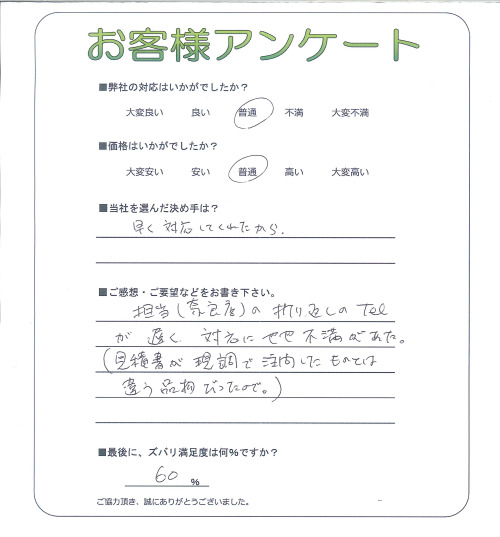 お客様アンケート
■弊社の対応はいかがでしたか？
大変良い 良い 普通 不満 大変不満
■価格はいかがでしたか？
大変安い 安い 普通 高い 大変高い
■当社を選んだ決め手は？
早く対応してくれたから.
■ご感想・ご要望などをお書き下さい。
担当(奈良店)の折り返しのTel
が遅く 対応にやや不満があった。
(見積書が現調で注向したものとは
違う品物だったので。)
■最後に、ズバリ満足度は何%ですか？
60 %
ご協力頂き、誠にありがとうございました。